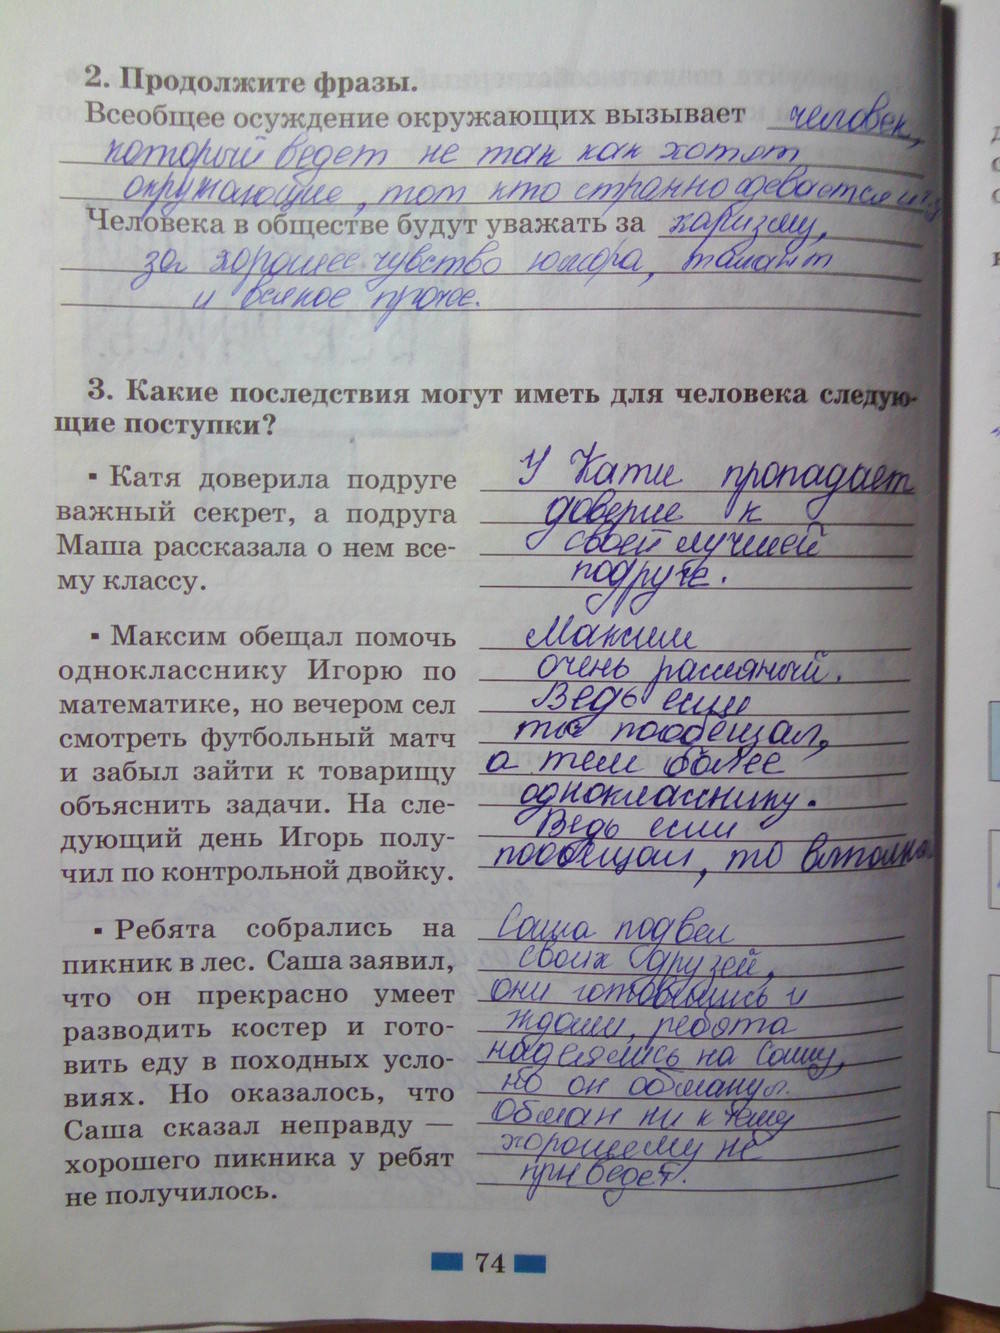 2. Продолжите фразы.
Всеобщее осуждение окружающих вызывает человек,
который ведет не так как хотят
окружающие, тот кто странно одевается и тд
Человека в обществе будут уважать за харизму,
за хорошее чувство юмора, талант
и всякое прочее.
3. Какие последствия могут иметь для человека следую-
щие поступки?
▪ Катя доверила подруге
важный секрет, а подруга
Маша рассказала о нем все-
му классу.
У Кати пропадает
доверие к
своей лучшей
подруге.
▪ Максим обещал помочь
однокласснику Игорю по
математике, но вечером сел
смотреть футбольный матч
и забыл зайти к товарищу
объяснить задачи. На сле-
дующий день Игорь полу-
чил по контрольной двойку.
Максим
очень рассяный.
Ведь если
ты пообещал,
а тем более
однокласснику.
Ведь если
пообещал, то
▪ Ребята собрались на
пикник в лес. Саша заявил,
что он прекрасно умеет
разводить костер и гото-
вить еду в походных усло-
виях. Но оказалось, что
Саша сказал неправду —
хорошего пикника у ребят
не получилось.
Саша подвел
своих друзей,
они готовились и
ждали, ребята
надеялись на Сашу,
но он обманул.
Обман ни к чему
хорошему не
приведет.
74